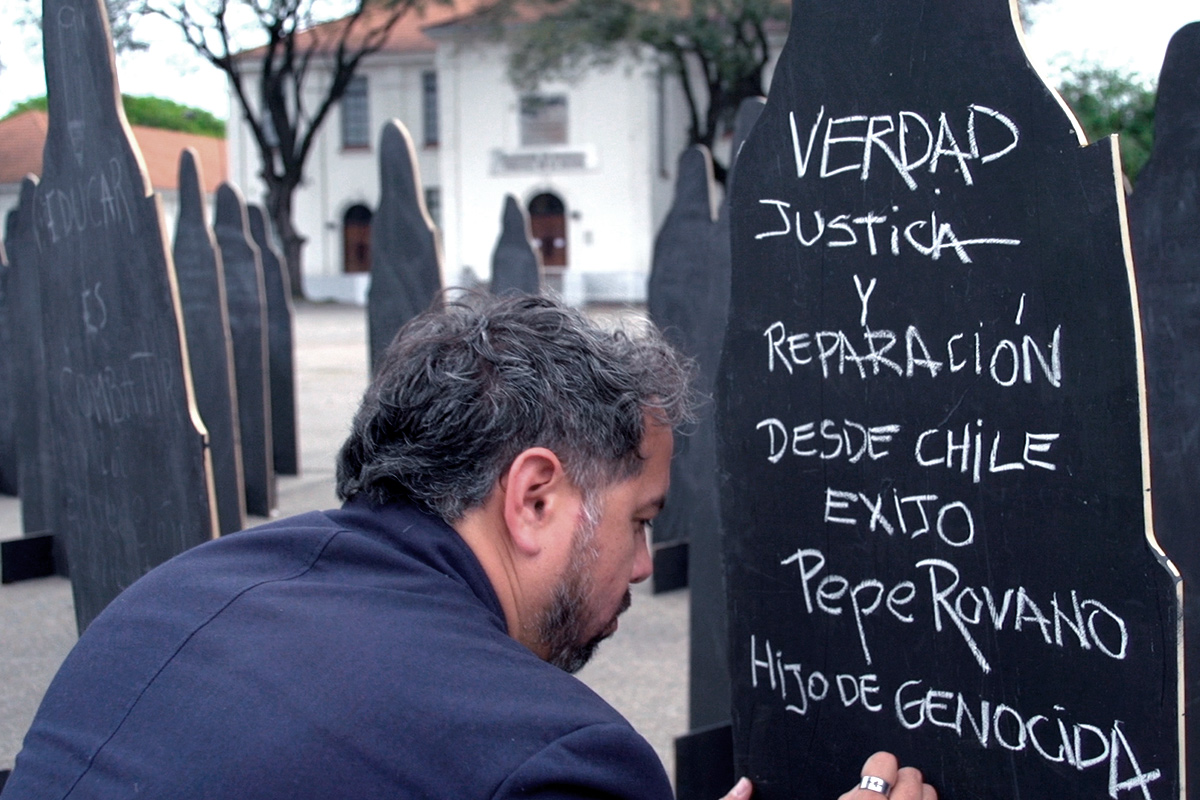 EDUCAR
ES
COMBATIR
VERDAD
JUSTICIA
Y
REPARACIÓN
DESDE CHILE
EXIJO
Pepe ROVANO
HIJO DE GENOCIDA